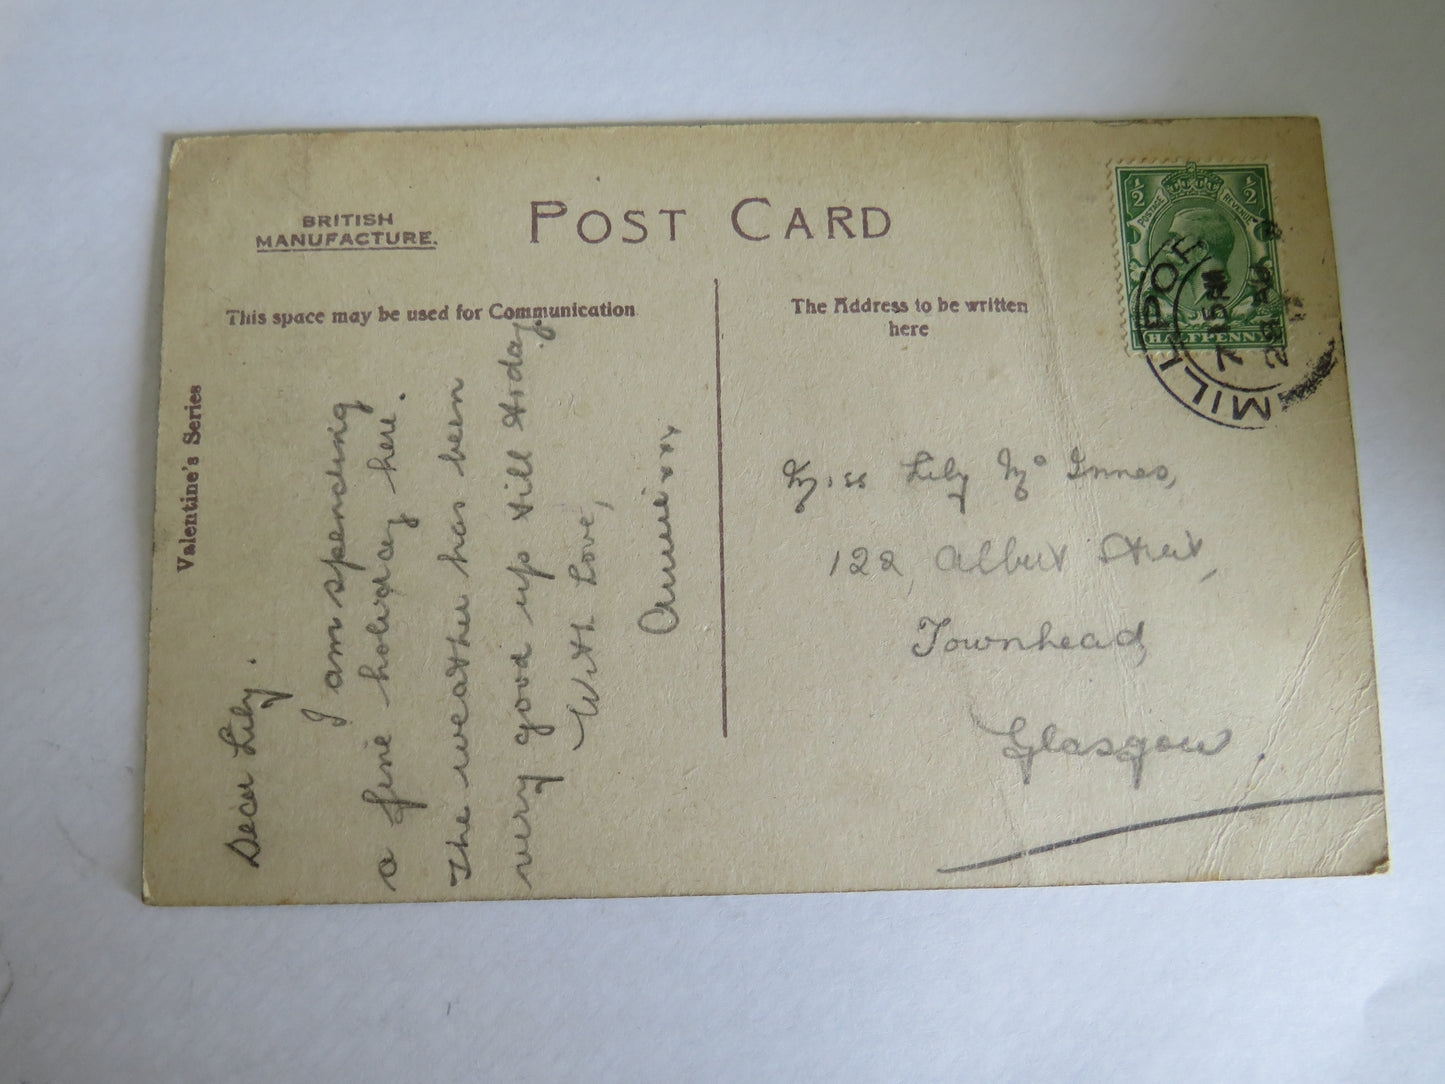 BRITISH
MANUFACTURE.
POST CARD
This space may be used for Communication
The Address to be written
here
Valentine's Series
½ ½
POSTAGE REVENUE
HALFPENNY
MILLPO
7 15 PM
28
Dear Lily.
I am spending
a fine holiday here.
The weather has been
very good up till today.
With Love,
Annie xxx
Miss Lily Mc Innes,
122 Albert Street,
Townhead,
Glasgow.